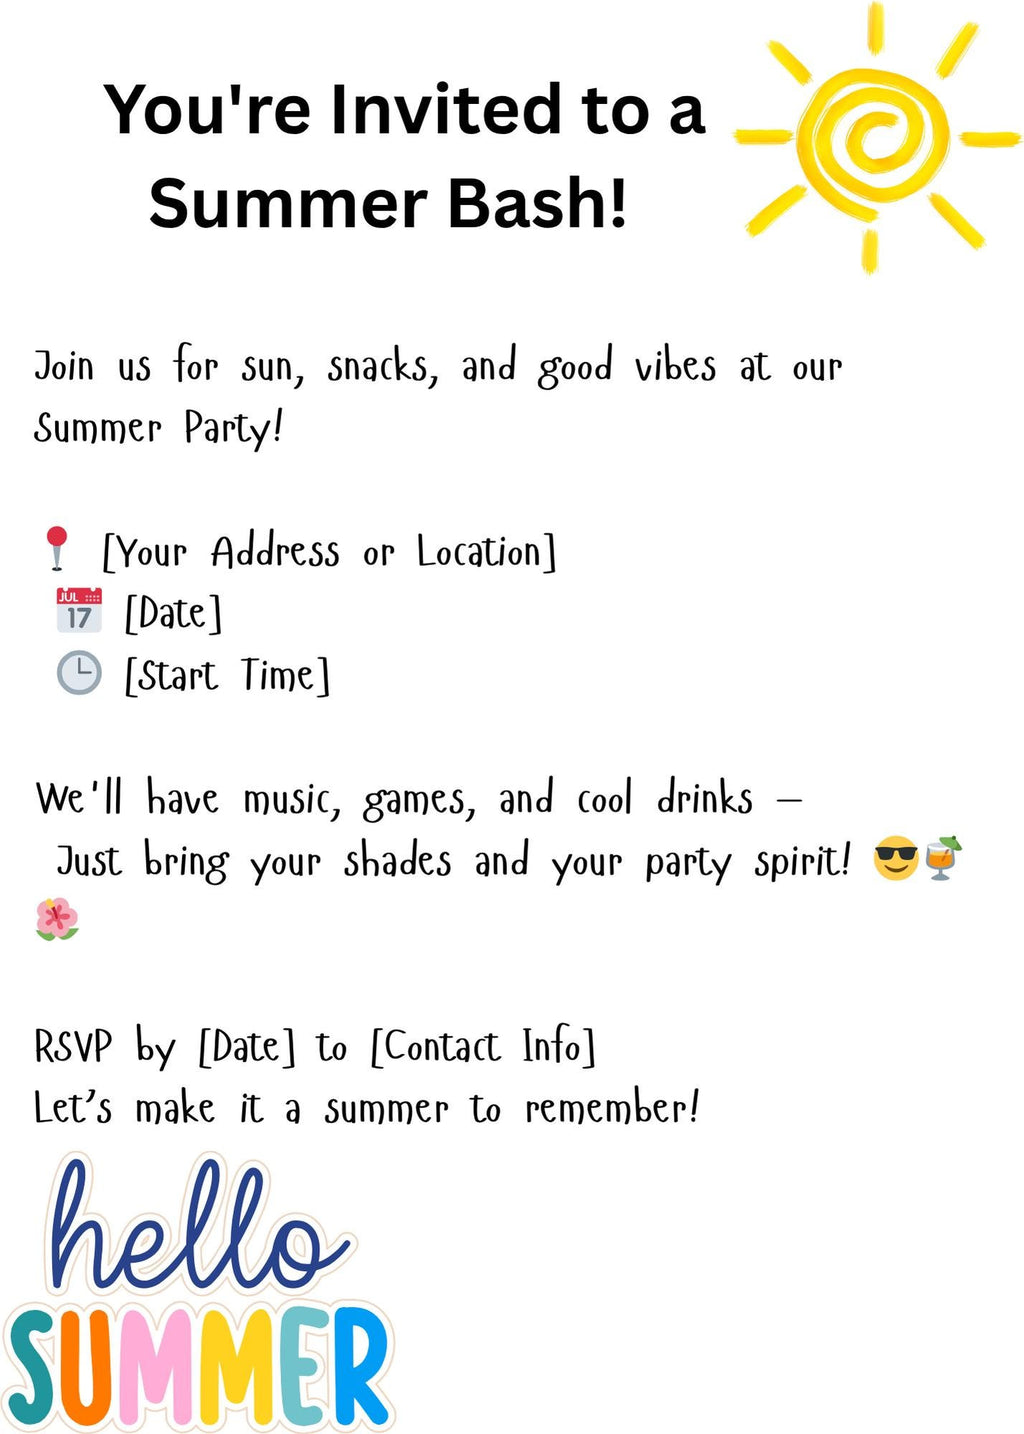 You're Invited to a
Summer Bash!
Join us for sun, snacks, and good vibes at our
Summer Party!
📍 [Your Address or Location]
📅 [Date]
🕒 [Start Time]
We'll have music, games, and cool drinks —
Just bring your shades and your party spirit! 😎🍹
🌺
RSVP by [Date] to [Contact Info]
Let’s make it a summer to remember!
hello
SUMMER